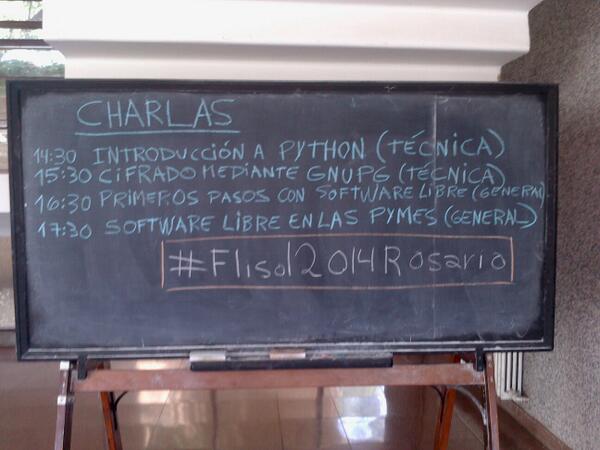 CHARLAS
14:30 INTRODUCCIÓN A PYTHON (TÉCNICA)
15:30 CIFRADO MEDIANTE GNUPG (TÉCNICA)
16:30 PRIMEROS PASOS CON SOFTWARE LIBRE (GENERAL)
17:30 SOFTWARE LIBRE EN LAS PYMES (GENERAL)
#Flisol2014Rosario